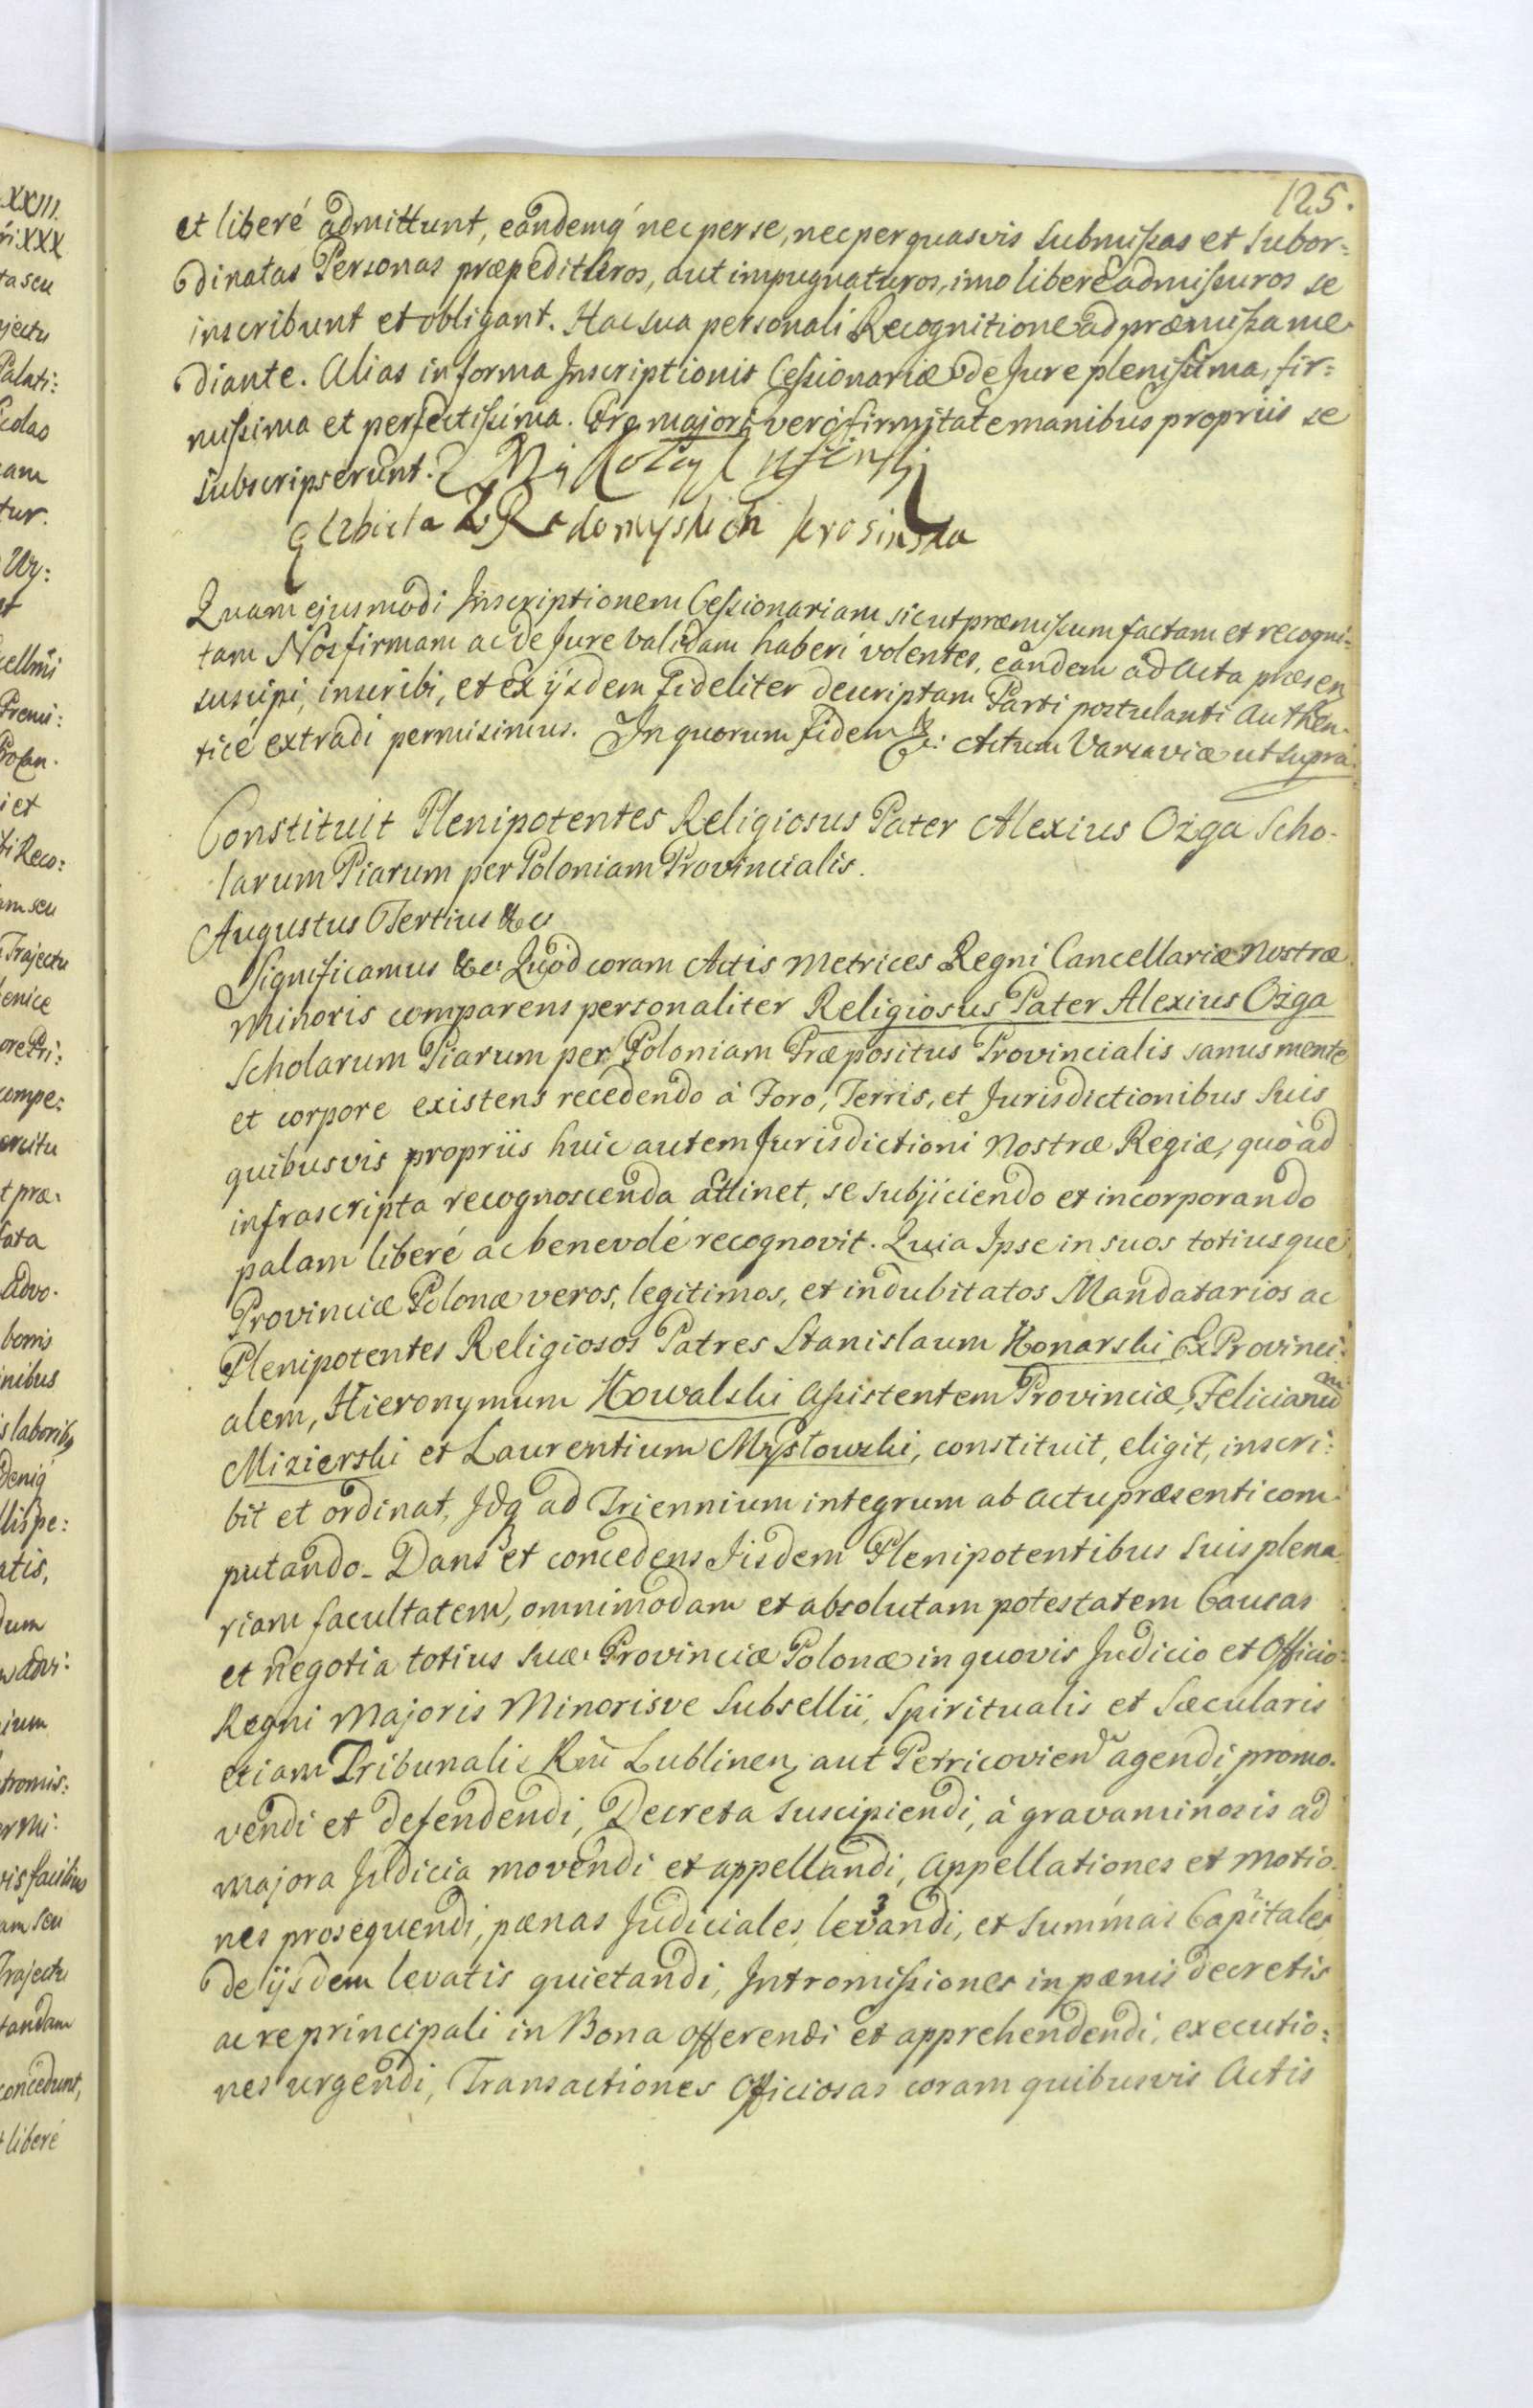 125.
et liberé admittunt, eandemq́ nec per se, nec per quasvis submissas et subor=
dinatas Personas præpedituros, aut impugnaturos, imo liberè admissuros se
inscribunt et obligant. Hac sua personali Recognitione ad præmissa me
diante. Alias in forma Inscriptionis Cessionariæ de Jure plenissima, fir=
missima et perfectissima. Pro majori veró firmitate manibus propriis se
subscripserunt.
Z Radomyskich krosinska
Quam ejusmodi Inscriptionem Cessionariam sicut præmissum factam et recogni=
tam Nos firmam ac de Jure validam haberi volentes, eandem ad Acta præsen
suscipi, inscribi, et ex ijsdem fideliter descriptam Parti postulanti Authen-
ticé extradi permisimus. In quorum fidem &c: Actum Varsaviæ ut supra.
Constituit Plenipotentes Religiosus Pater Alexius Ożga Scho-
larum Piarum per Poloniam Provincialis.
Augustus Tertius &c
Significamus &c: Quod coram Actis Metrices Regni Cancellariæ Nostræ
Minoris comparens personaliter Religiosus Pater Alexius Ożga
Scholarum Piarum per Poloniam Præpositus Provincialis sanus mente
et corpore existens recedendo à Foro, Terris, et Jurisdictionibus suis
quibusvis propriis huic autem Jurisdictioni Nostræ Regiæ, quò ad
infrascripta recognoscenda attinet, se subjiciendo et incorporando
palam liberé ac benevolé recognovit. Quia Ipse in suos totiusque
Provinciæ Polonæ veros, legitimos, et indubitatos Mandatarios ac
Plenipotentes Religiosos Patres Stanislaum Konarski Ex Provinci:
alem, Hieronymum Kowalski Assistentem Provinciæ, Felicianum
Mizierski et Laurentium Mystowski, constituit, eligit, inscri:
bit et ordinat, Idq́ ad Triennium integrum ab actu præsenti com-
putando. Dans et concedens Iisdem Plenipotentibus suis plena
riam facultatem, omnimodam et absolutam potestatem Causas
et negotia totius suæ Provinciæ Polonæ in quovis Judicio et Officio
Regni Majoris Minorisve Subsellii, Spiritualis et Sæcularis
etiam Tribunalis Rnĩ Lublinen, aut Petricovien agendi, promo-
vendi et defendendi, Decreta suscipiendi, à gravaminosis ad
majora Judicia movendi et appellandi, Appellationes et motio-
nes prosequendi, pænas Judiciales levandi, et summas Capitales
de ijsdem levatis quietandi, Intromissiones in pænis decretis
ac re principali in Bona offerendi et apprehendendi, executio:
nes urgendi, Transactiones Officiosas coram quibusvis Actis